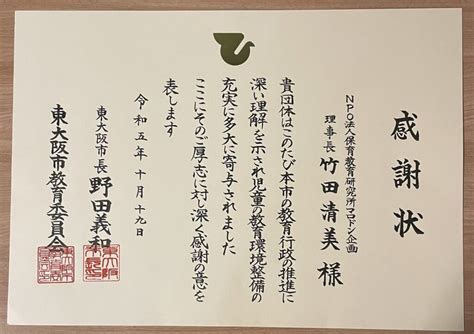 感謝状
NPO法人保育教育研究所マロドン企画
理事長 竹田清美 様
貴団体はこのたび本市の教育行政の推進に
深い理解を示され児童の教育環境整備の
充実に多大に寄与されました
ここにそのご厚志に対し深く感謝の意を
表します
令和五年十月十九日
東大阪市長 野田義和
東大阪市教育委員会